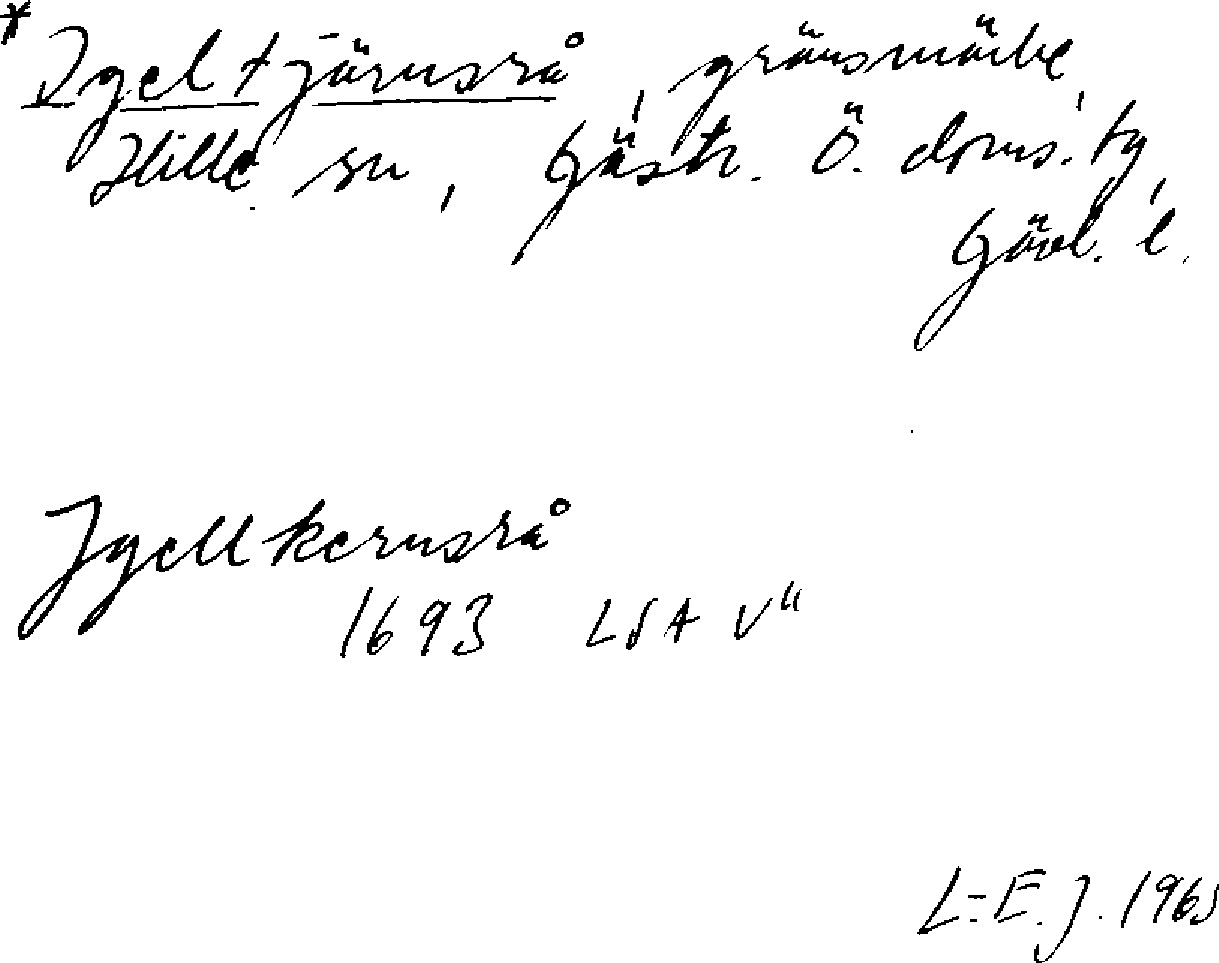 * Igeltjärnsrå, gränsmärke,
Hille sn, Gästr. Ö. doms. tg,
Gävl. l.
Jgellkernsrå
1693 LSA V11
L-E. J. 1965